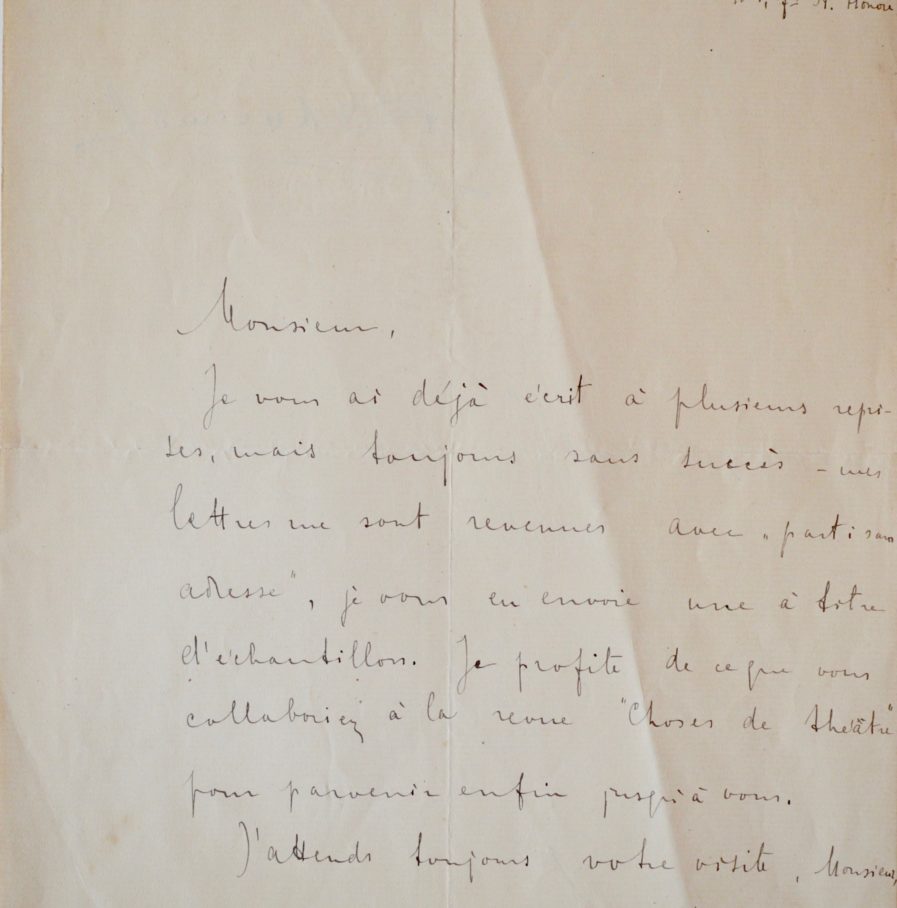 f^g St. Honoré
Monsieur,
Je vous ai déjà écrit à plusieurs repri-
ses, mais toujours sans succès - mes
lettres me sont revenues avec „parti sans
adresse", je vous en envoie une à titre
d'échantillon. Je profite de ce que vous
collaboriez à la revue "Choses de théâtre"
pour parvenir enfin jusqu'à vous.
J'attends toujours votre visite, Monsieur,